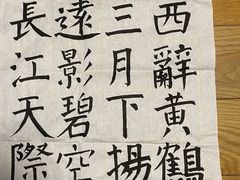 西辭黄鶴
三月下揚
遠影碧空
長江天際